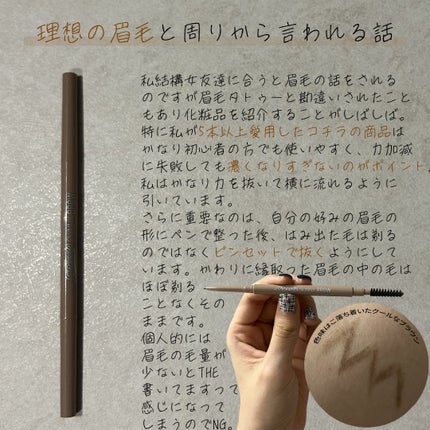 理想の眉毛と周りから言われる話
私結構女友達に合うと眉毛の話をされる
のですが眉毛タトゥーと勘違いされたこと
もあり化粧品を紹介することがしばしば。
特に私が5本以上愛用したコチラの商品は
かなり初心者の方でも使いやすく、力加減
に失敗しても濃くなりすぎないのがポイント。
私はかなり力を抜いて横に流れるように
引いています。
さらに重要なのは、自分の好みの眉毛の
形にペンで整った後、はみ出た毛は剃る
のではなくピンセットで抜くようにして
います。かわりに縁取った眉毛の中の毛は
ほぼ剃る
ことなくその
ままです。
個人的には
眉毛の毛量が
少ないとTHE
書いてますって
感じになって
しまうのでNG。
色味はご落ち着いたクールなブラウン